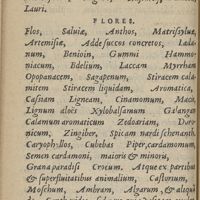 Lauri.
FLORES.
Flos, Salviæ, Anthos, Matrisylvæ,
Artemisiæ, Adde succos concretos, Lada-
num, Benioin, Gummi Hammo-
niacum, Bdelium, Laccam Myrrham
Opopanacem, Sagapenum, Stiracem cala-
mitem Stiracem liquidam, Aromatica,
Casiam Ligneam, Cinamomum, Macer
Lignum aloës Xylobalsamum Galangam
Calamum aromaticum Zedoariam,
num, Zingiber, Spicam nardi schenanth.
Caryophyllos, Cubebas Piper, cardamomum,
Semen cardamoni, maioris & minoris,
Grana paradisi Crocum. Atque ex partibus
& superfluitatibus animalium, Castorum,
Moschum, Ambram, Algarum, & aliquid